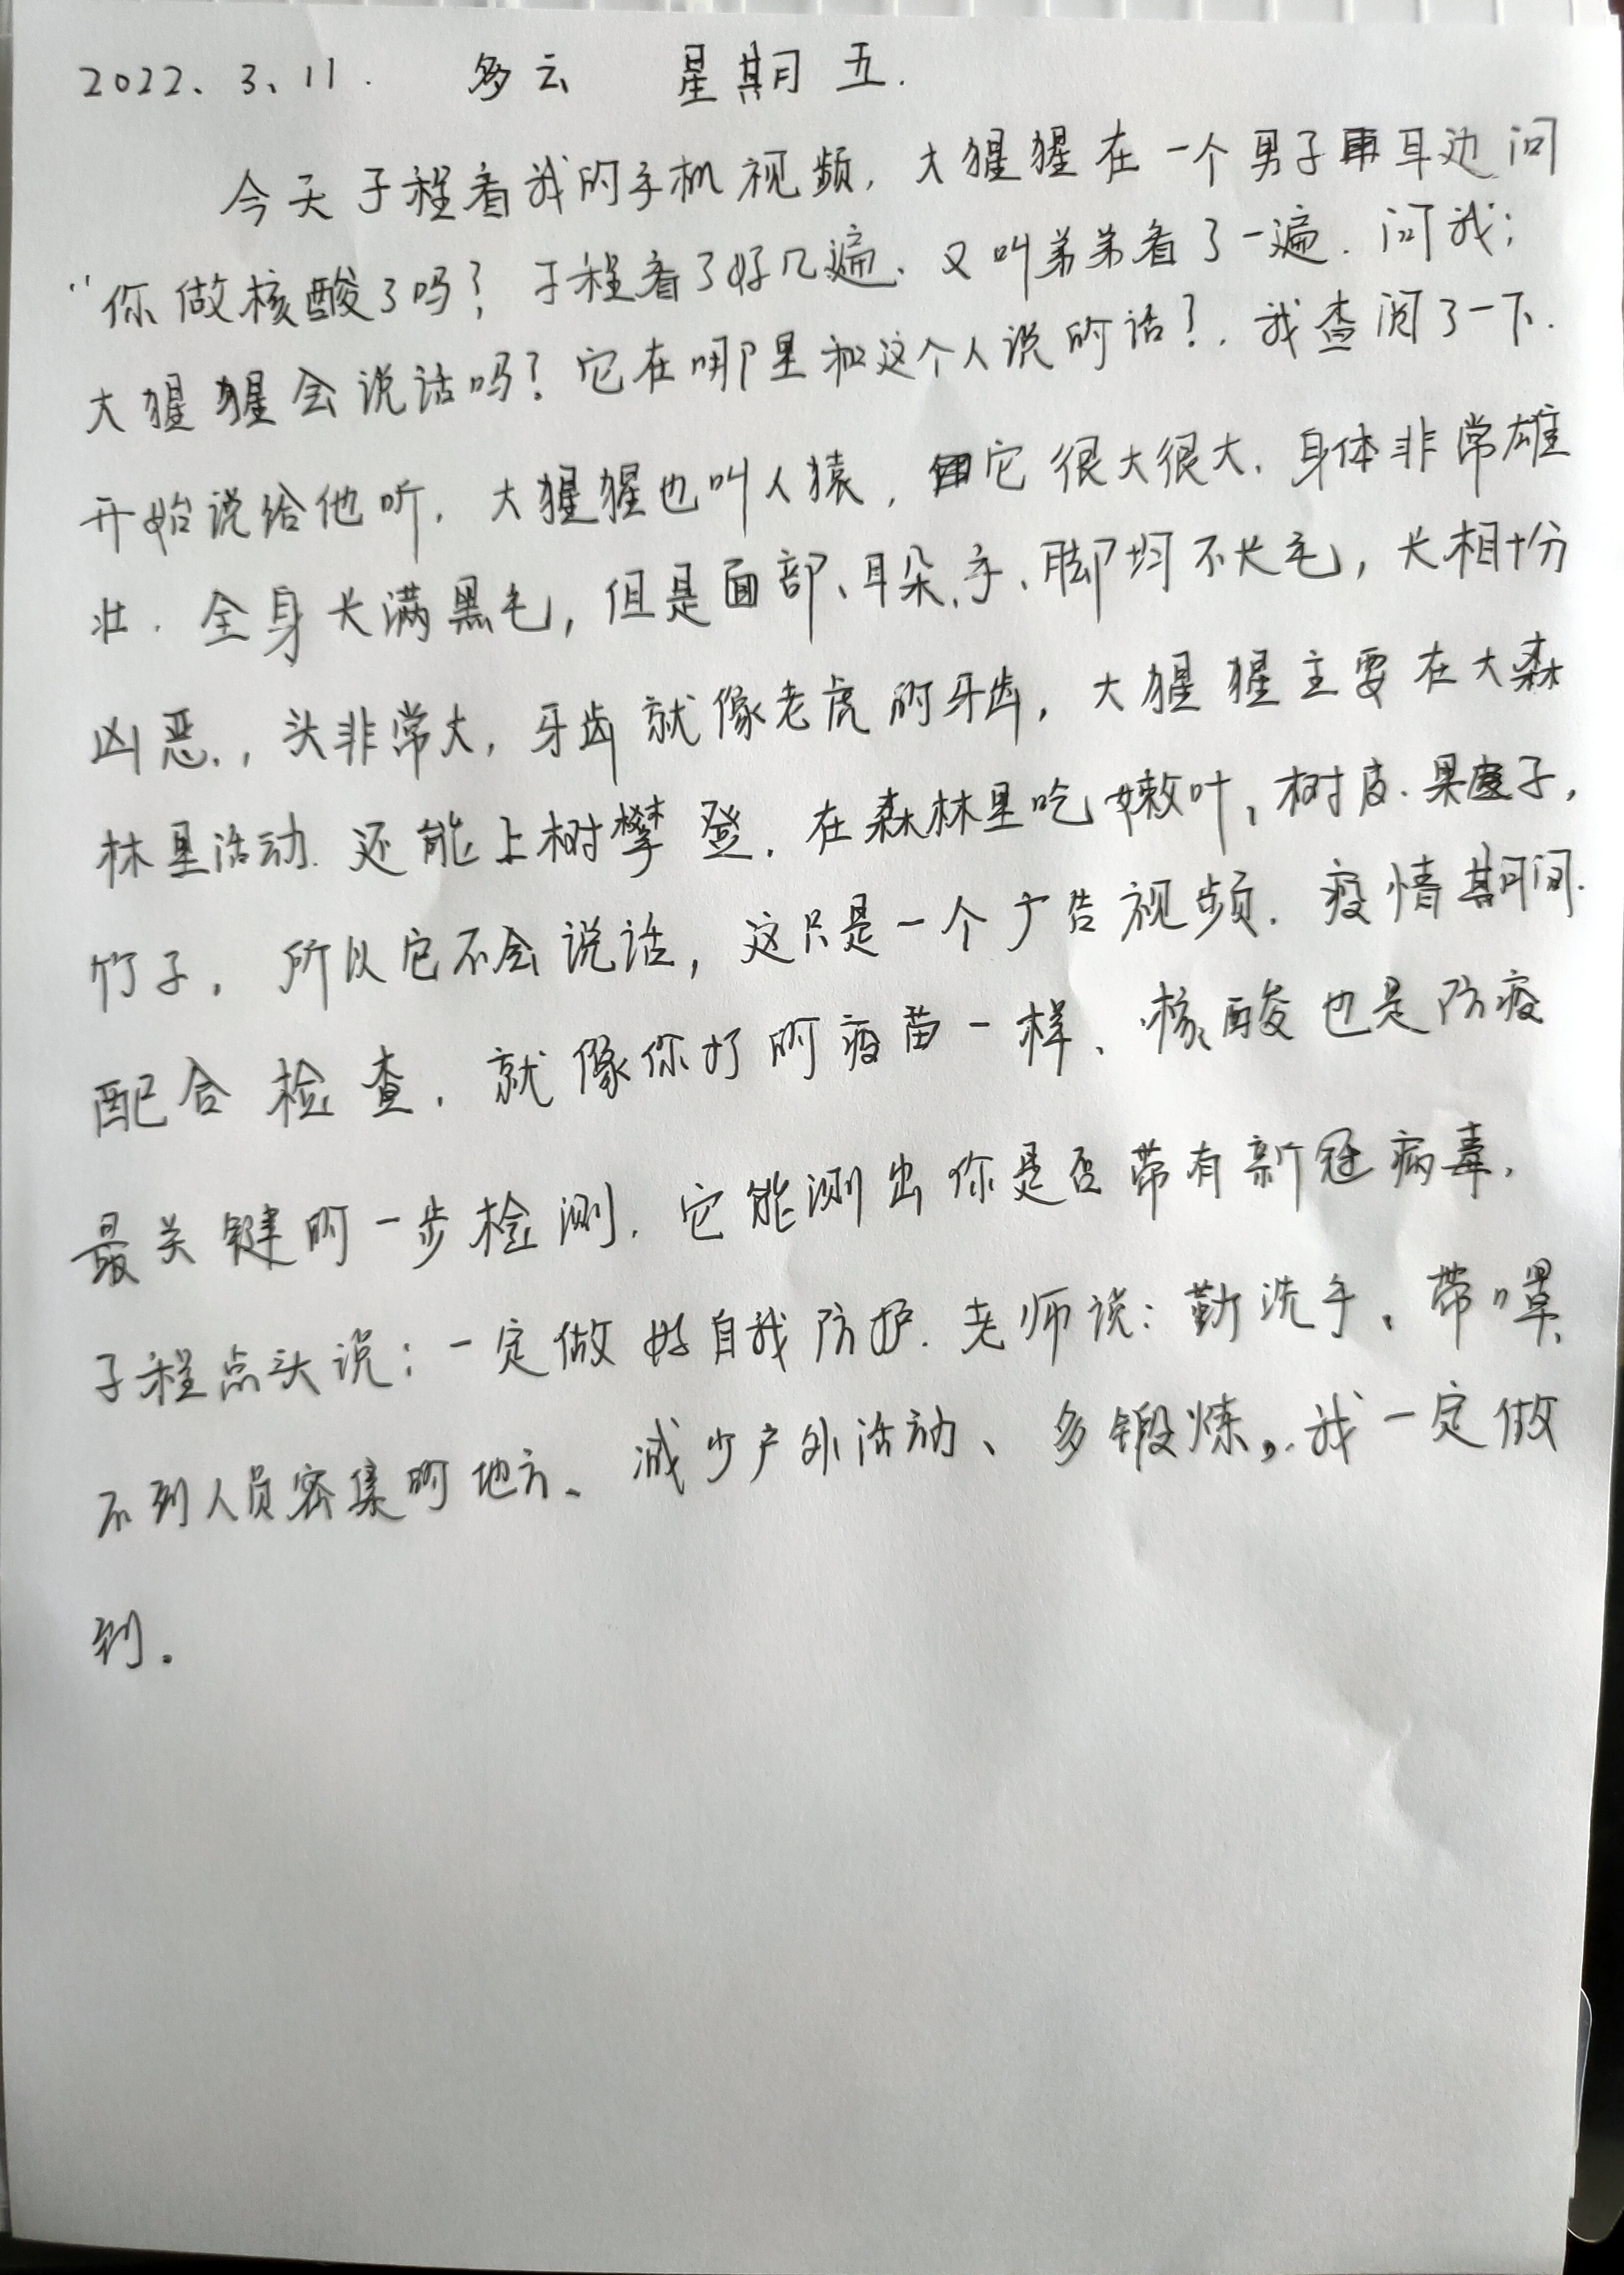 2022、3、11. 多云 星期五.
今天子程看我的手机视频, 大猩猩在一个男子耳边问
“你做核酸了吗? 子程看了好几遍、又叫弟弟看了一遍. 问我;
大猩猩会说话吗? 它在哪里和这个人说的话?. 我查阅了一下.
开始说给他听. 大猩猩也叫人猿, 它很大很大. 身体非常雄
壮. 全身长满黑毛, 但是面部、耳朵、手、脚均不长毛, 长相十分
凶恶., 头非常大, 牙齿就像老虎的牙齿, 大猩猩主要在大森
林里活动. 还能上树攀登. 在森林里吃嫩叶, 树皮. 果子,
竹子, 所以它不会说话, 这只是一个广告视频. 疫情期间.
配合检查. 就像你打的疫苗一样、核酸也是防疫
最关键的一步检测. 它能测出你是否带有新冠病毒,
子程点头说: 一定做好自我防护. 老师说: 勤洗手、带口罩、
不到人员密集的地方、减少户外活动、多锻炼,. 我一定做
到。